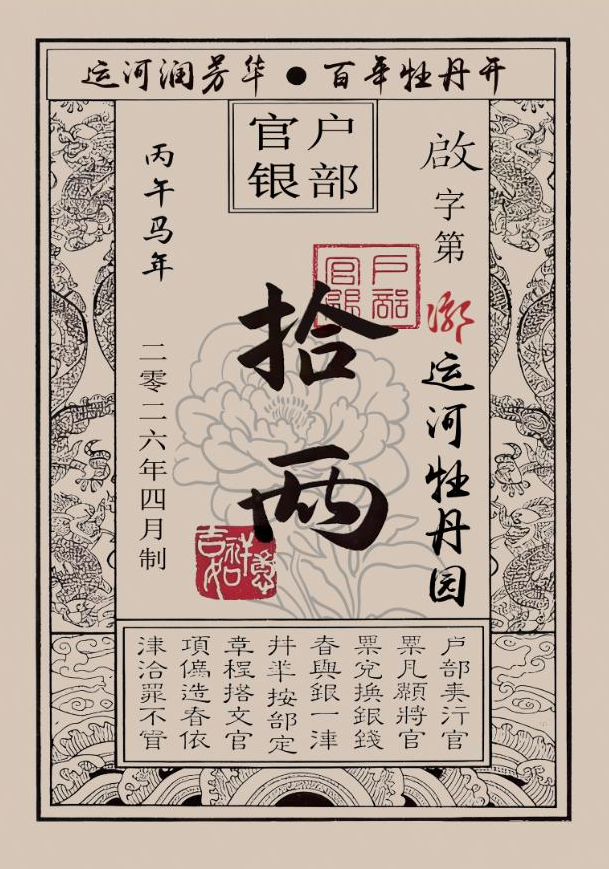 运河润芳华●百年牡丹开
户部
官银
啟字第
漷运河牡丹园
户部
官銀
拾两
吉祥如意
丙午马年
二零二六年四月制
户部奏行官
票凡願將官
票兑換銀錢
者與銀一律
并準按部定
章程搭交官
項偽造者依
律治罪不貸